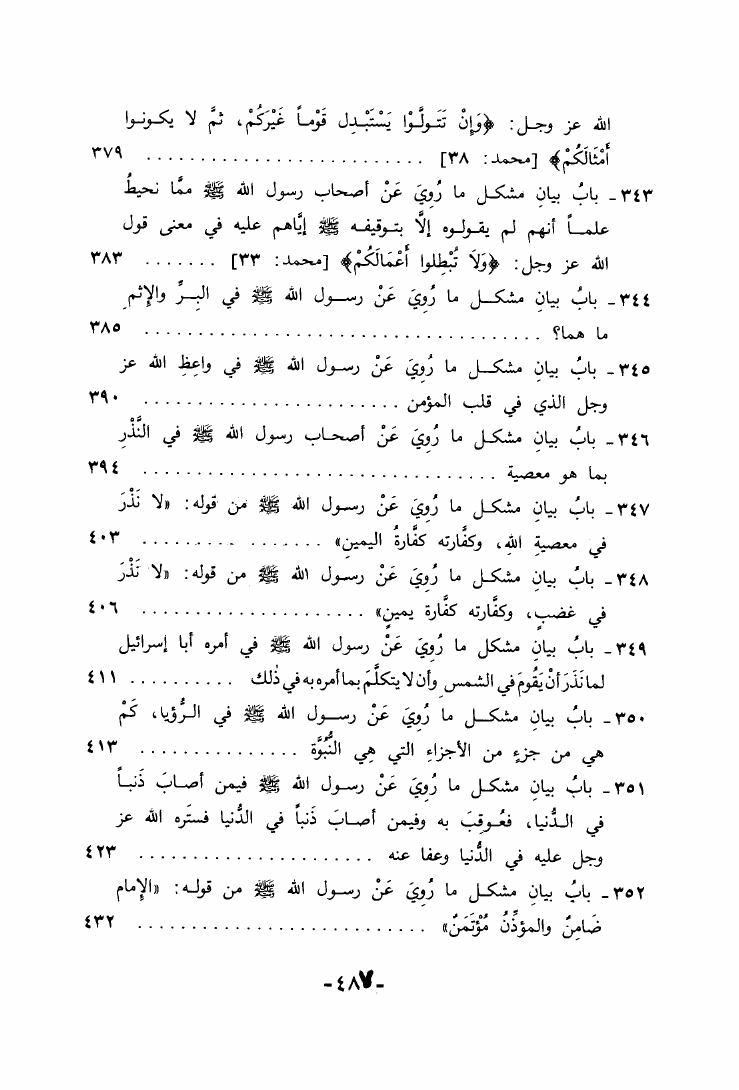 الله عز وجـل: ﴿وَإِنْ تَتَـولَّـوْا يَسْتَبْـدِل قَوْمـاً غَيْرَكُمْ، ثمَّ لا يكـونـوا
أَمْثَالَكُمْ﴾ [محمد: ٣٨] .......................... ٣٧٩
٣٤٣ـ بابُ بيانِ مشكـل ما رُوِيَ عَنْ أصحاب رسول الله ﷺ ممَّا نحيطُ
علمـاً أنهم لم يقـولـوه إلَّا بتـوقيفـه ﷺ إيَّاهم عليه في معنى قول
الله عز وجل: ﴿وَلَا تُبْطِلوا أَعْمَالَكُمْ﴾ [محمد: ٣٣] ....... ٣٨٣
٣٤٤ـ بابُ بيانِ مشكـل ما رُوِيَ عَنْ رسـول الله ﷺ في البِـرِّ والإِثمِ
ما هما؟ ..................................... ٣٨٥
٣٤٥ـ بابُ بيانِ مشكـل ما رُوِيَ عَنْ رسـول الله ﷺ في واعِظِ الله عز
وجل الذي في قلب المؤمن ........................ ٣٩٠
٣٤٦ـ بابُ بيانِ مشكـل ما رُوِيَ عَنْ أصحـاب رسول الله ﷺ في النَّذْرِ
بما هو معصية ................................. ٣٩٤
٣٤٧ـ بابُ بيانِ مشكـل ما رُوِيَ عَنْ رسـول الله ﷺ من قوله: «لا نَذْرَ
في معصيةِ الله، وكفَّارته كفَّارةُ اليمينِ» ................ ٤٠٣
٣٤٨ـ بابُ بيانِ مشكـل ما رُوِيَ عَنْ رسـول الله ﷺ من قوله: «لا نَذْرَ
في غضبٍ، وكفَّارته كفَّارة يمينٍ» ..................... ٤٠٦
٣٤٩ـ بابُ بيانِ مشكل ما رُوِيَ عَنْ رسول الله ﷺ في أمره أبا إسرائيل
لما نَذَرَ أنْ يَقُومَ في الشمسِ وأن لا يتكلَّمَ بما أمره به في ذلك .......... ٤١١
٣٥٠ـ بابُ بيانِ مشكـل ما رُوِيَ عَنْ رسـول الله ﷺ في الـرُّؤيا، كَمْ
هي من جزءٍ من الأجزاءِ التي هِي النُّبُوَّة ............... ٤١٣
٣٥١ـ بابُ بيانِ مشكـل ما رُوِيَ عَنْ رسـول الله ﷺ فيمن أصـابَ ذَنبـاً
في الـدُّنيا، فعُـوقِبَ به وفيمن أصـابَ ذَنباً في الدُّنيا فستَره الله عز
وجل عليه في الدُّنيا وعفا عنه ...................... ٤٢٣
٣٥٢ـ بابُ بيانِ مشكـل ما رُوِيَ عَنْ رسـول الله ﷺ من قولـه: «الإِمام
ضَامِنٌ والمؤذِّنُ مُؤْتَمَنٌ» ........................... ٤٣٢
-٤٨٧-